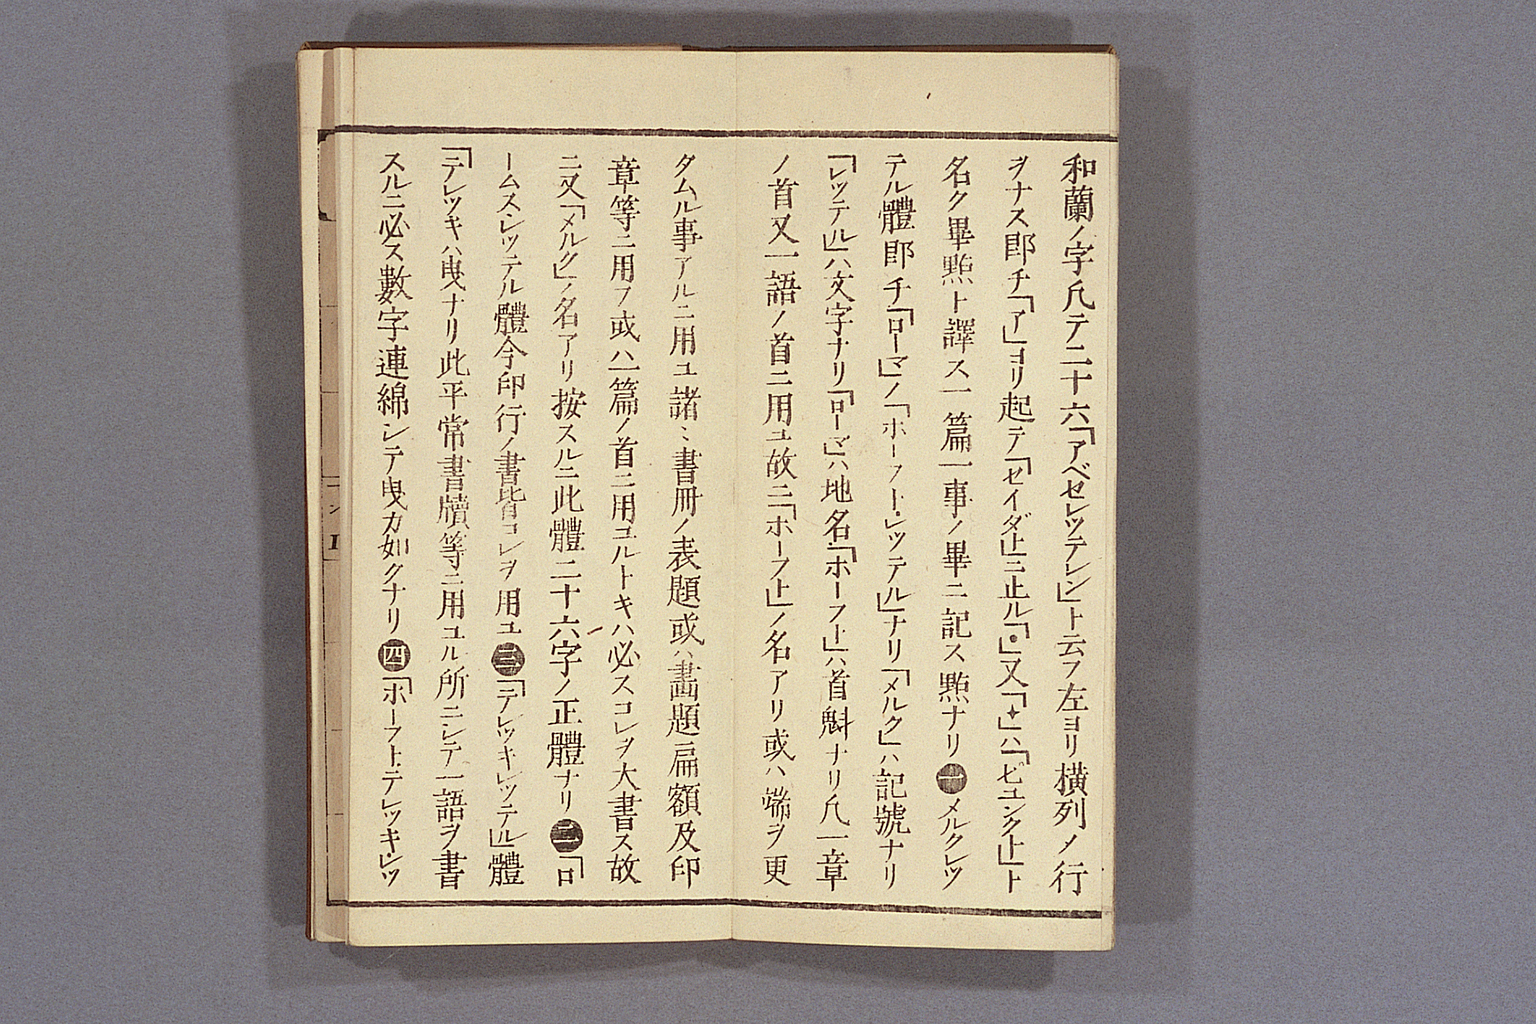 和蘭ノ字凡テ二十六「アベセレッテレン」ト云フ左ヨリ横列ノ行
ヲナス即チ「ア」ヨリ起テ「セイダ」ニ止ル「•」又「✦」ハ「ピュンクト」ト
名ク畢㸃ト譯ス一篇一事ノ畢ニ記ス㸃ナリ㊀メルクレッ
テル體即チ「ローマ」ノ「ホーフト・レッテル」ナリ「メルク」ハ記號ナリ
「レッテル」ハ文字ナリ「ローマ」ハ地名「ホーフト」ハ首魁ナリ凡一章
ノ首又一語ノ首ニ用ユ故ニ「ホーフト」ノ名アリ或ハ端ヲ更
タムル事アルニ用ユ諸〻書冊ノ表題或ハ畫題扁額及印
章等ニ用フ或ハ一篇ノ首ニ用ユルトキハ必スコレヲ大書ス故
ニ又「メルク」ノ名アリ按スルニ此體二十六字ノ正體ナリ㊁「ロ
ームスレッテル體今印行ノ書皆コレヲ用ユ㊂「テレッキレッテル」體
「テレッキハ曳ナリ此平常書牘等ニ用ユル所ニシテ一語ヲ書
スルニ必ス數字連綿シテ曳カ如クナリ㊃「ホーフト・テレッキ・レッ